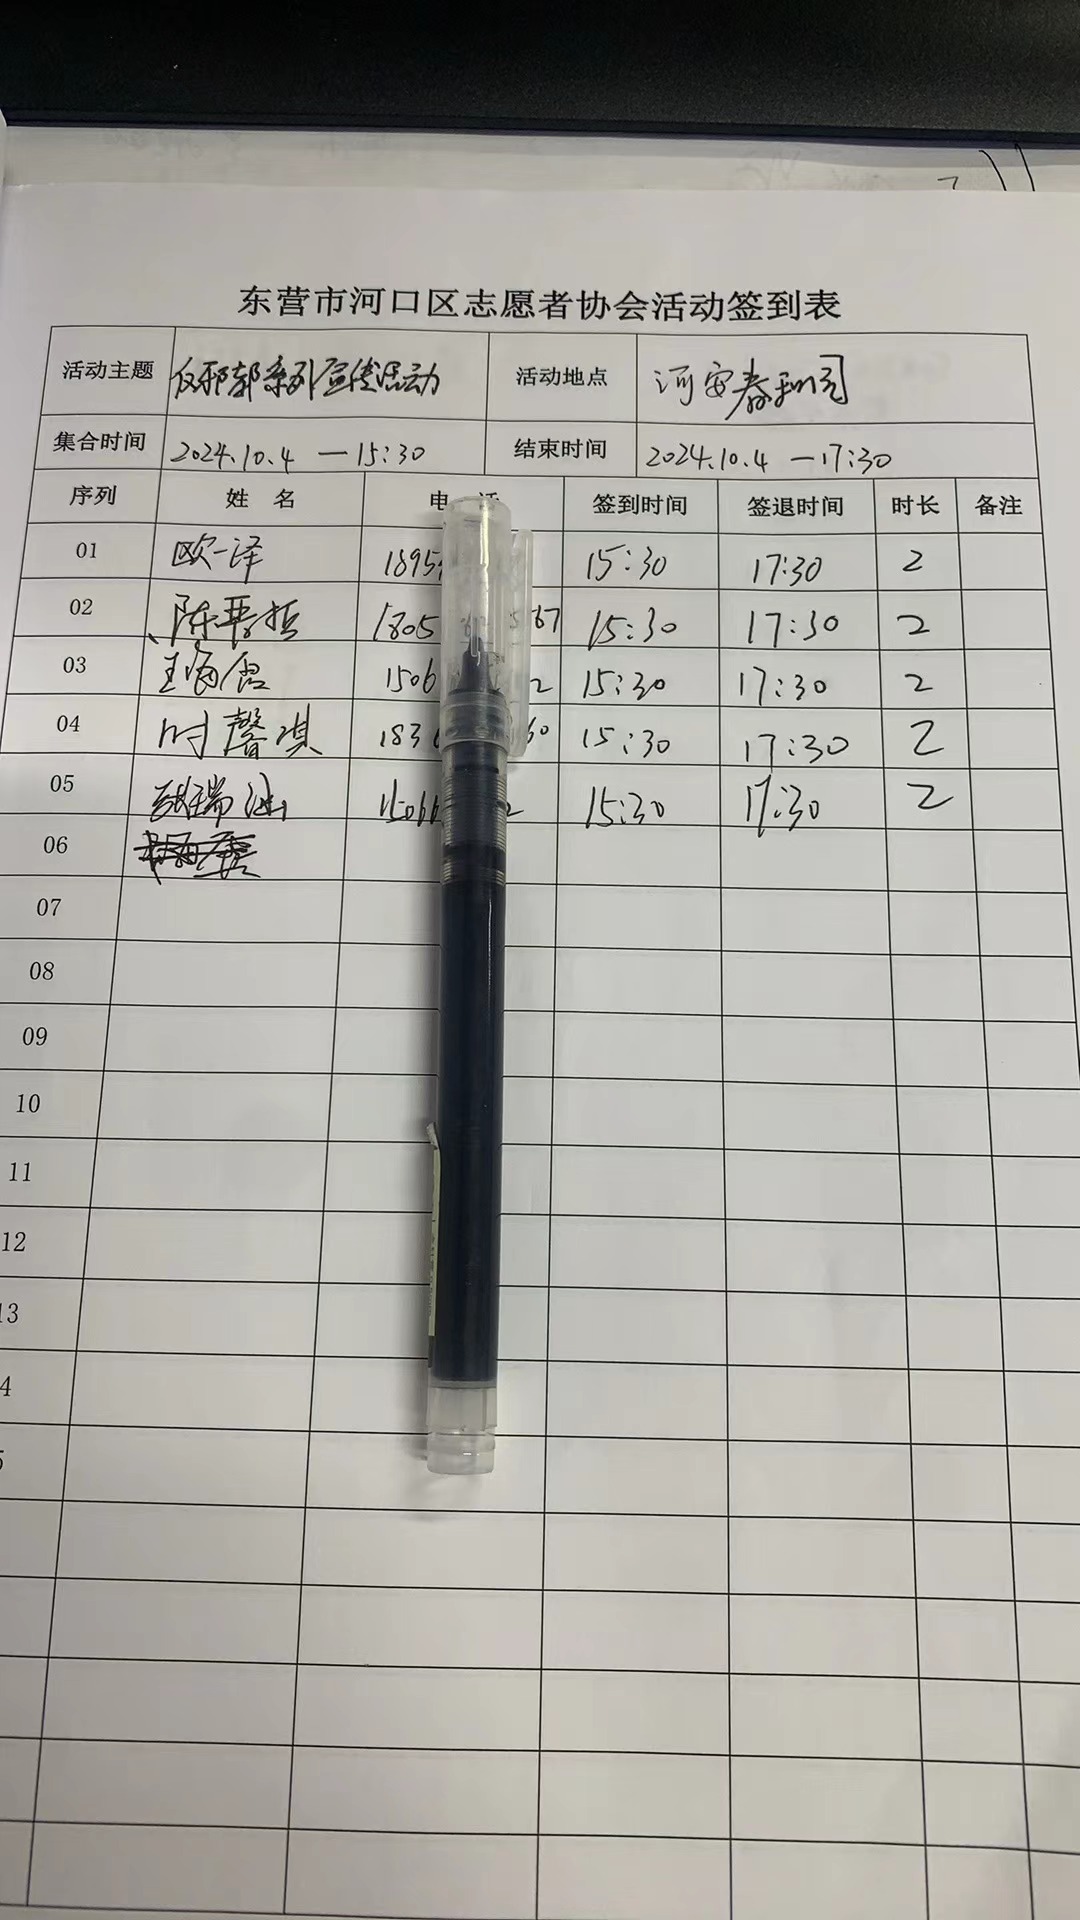 东营市河口区志愿者协会活动签到表
活动主题 系列宣传活动 活动地点 河安春
集合时间 2024.10.4 —15:30 结束时间 2024.10.4 —17:30
序列 姓 名 电 签到时间 签退时间 时长 备注
01 欧一泽 1895 15:30 17:30 2
02 陈 1805 67 15:30 17:30 2
03 王 1506 2 15:30 17:30 2
04 时馨琪 183 60 15:30 17:30 2
05 瑞 15066 2 15:30 17:30 2
06
07
08
09
10
11
12
13
4
5